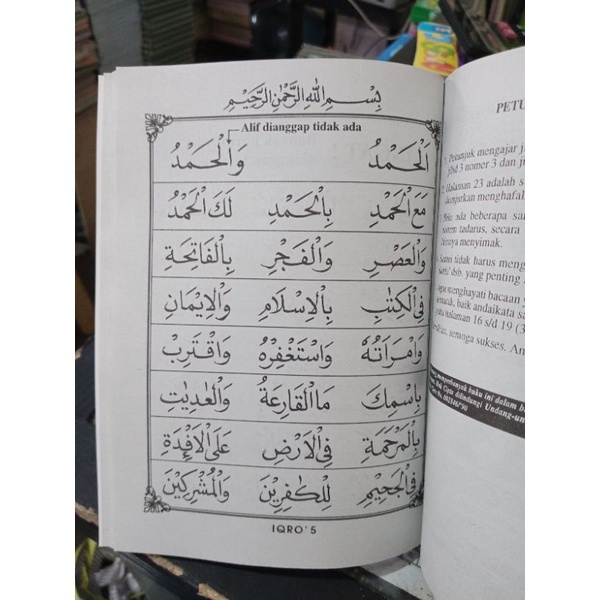 بِسْمِ اللهِ الرَّحْمٰنِ الرَّحِيْمِ
Alif dianggap tidak ada
اَلْحَمْدُ وَالْحَمْدُ
مَعَ الْحَمْدِ بِالْحَمْدِ لَكَ الْحَمْدُ
وَالْعَصْرِ وَالْفَجْرِ بِالْفَاتِحَةِ
فِى الْكِتٰبِ بِالْاِسْلَامِ وَالْاِيْمَانِ
وَامْرَاَتُهُ وَاسْتَغْفِرْهُ وَاقْتَرِبْ
بِاسْمِكَ مَاالْقَارِعَةُ وَالْعٰدِيٰتِ
بِالْمَرْحَمَةِ فِى الْاَرْضِ عَلَى الْاَفْئِدَةِ
فِى الْجَحِيْمِ لِلْكٰفِرِيْنَ وَالْمُشْرِكِيْنَ
IQRO' 5
PETU
1. Petunjuk mengajar j
jilid 3 nomer 3 dan ju
2. Halaman 23 adalah s
dianjurkan menghafal
ada beberapa sa
tadarus, secara
menyimak.
tidak harus meng
dsb. yang penting
menghayati bacaan y
baik andaikata sa
halaman 16 s/d 19 (3
semoga sukses. An
memperbanyak buku ini dalam b
Cipta dilindungi Undang-un